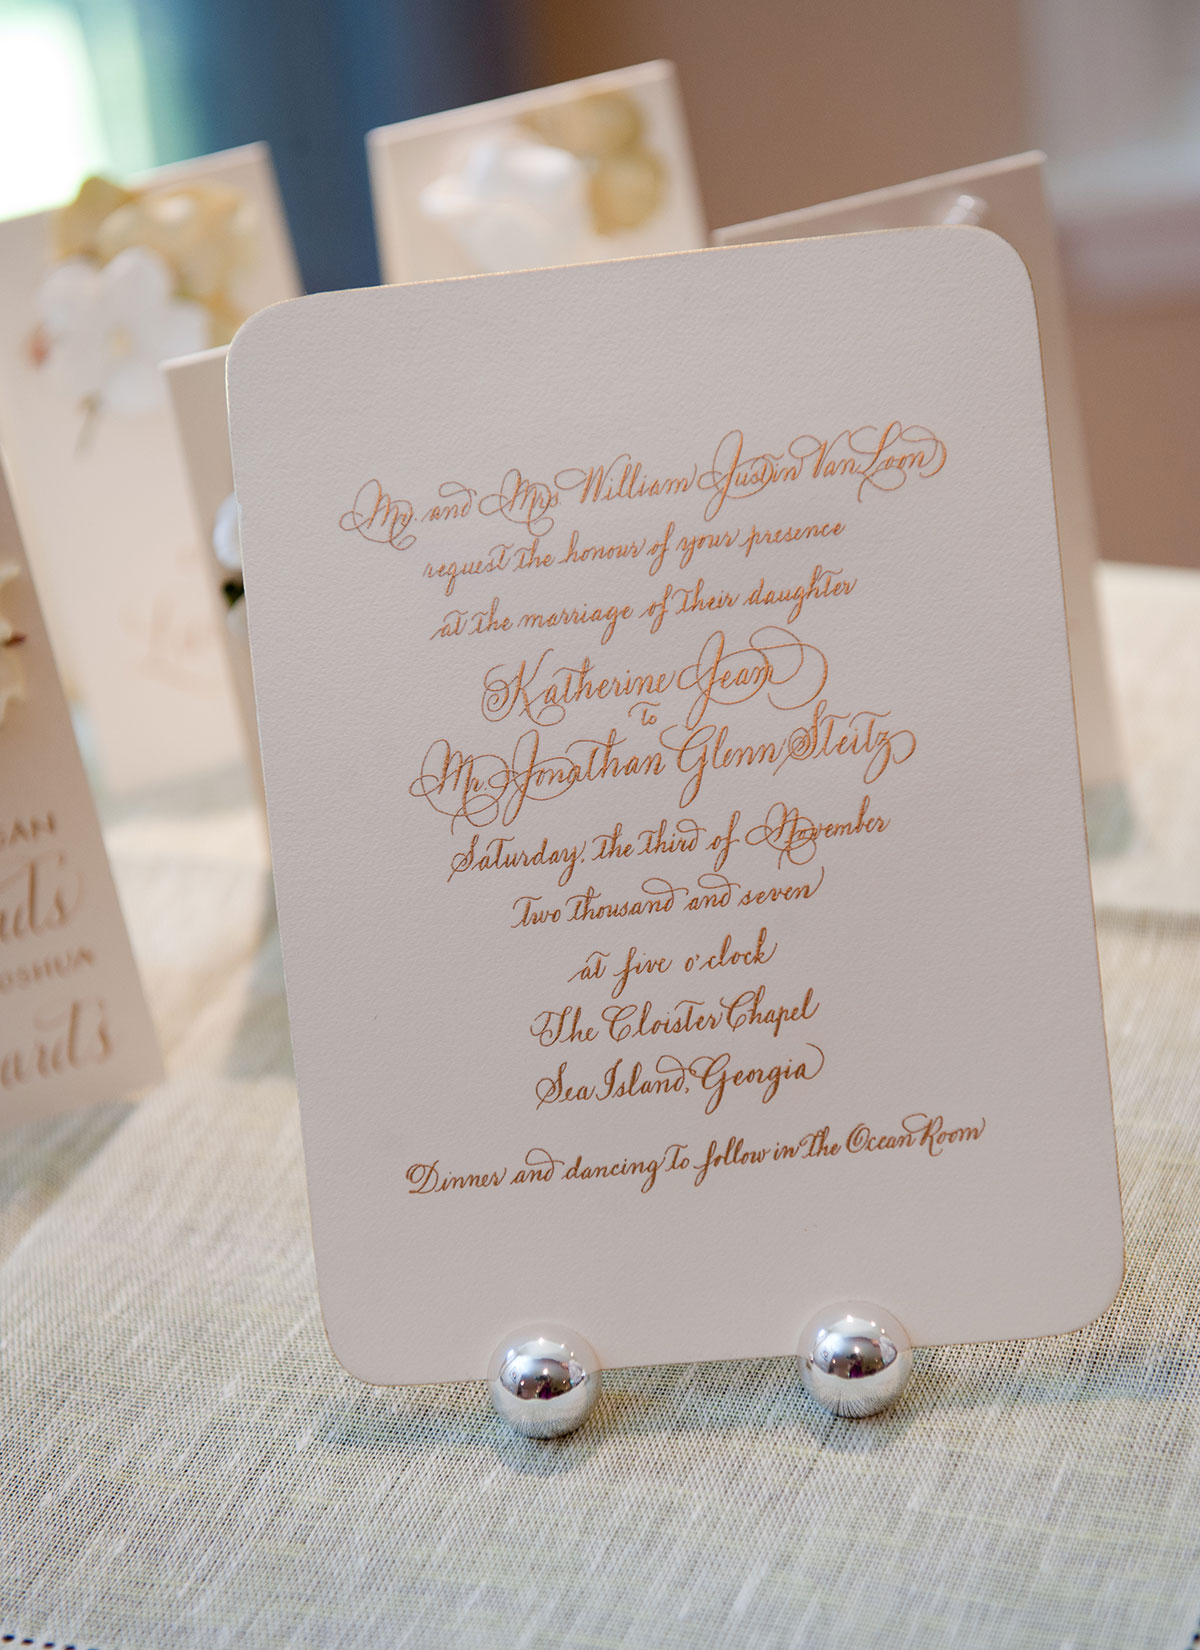 Mr. and Mrs. William Justin Van Loon
request the honour of your presence
at the marriage of their daughter
Katherine Jean
to
Mr. Jonathan Glenn Steitz
Saturday, the third of November
two thousand and seven
at five o'clock
The Cloister Chapel
Sea Island, Georgia
Dinner and dancing to follow in the Ocean Room